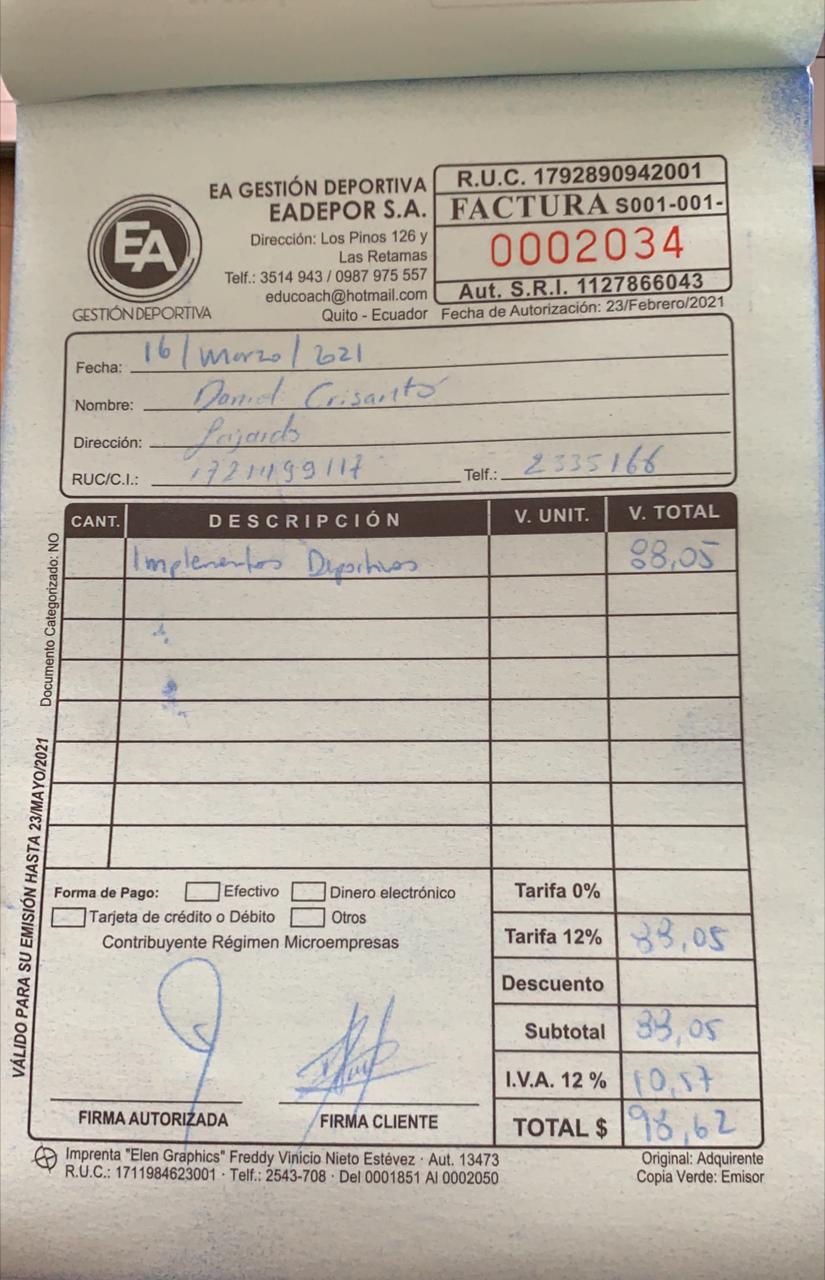 EA
GESTIÓN DEPORTIVA
EA GESTIÓN DEPORTIVA
EADEPOR S.A.
Dirección: Los Pinos 126 y
Las Retamas
Telf.: 3514 943 / 0987 975 557
educoach@hotmail.com
Quito - Ecuador
R.U.C. 1792890942001
FACTURA S001-001-
0002034
Aut. S.R.I. 1127866043
Fecha de Autorización: 23/Febrero/2021
Fecha: 16/Marzo/2021
Nombre: Daniel Crisanto
Dirección:
RUC/C.I.: Telf.: 2335166
CANT. DESCRIPCIÓN V. UNIT. V. TOTAL
Implementos Deportivos 88,05
Documento Categorizado: NO
VÁLIDO PARA SU EMISIÓN HASTA 23/MAYO/2021
Forma de Pago: Efectivo Dinero electrónico
Tarjeta de crédito o Débito Otros
Contribuyente Régimen Microempresas
Tarifa 0%
Tarifa 12% 88,05
Descuento
Subtotal 88,05
I.V.A. 12 % 10,57
TOTAL $ 98,62
FIRMA AUTORIZADA FIRMA CLIENTE
Imprenta "Elen Graphics" Freddy Vinicio Nieto Estévez · Aut. 13473
R.U.C.: 1711984623001 · Telf.: 2543-708 · Del 0001851 Al 0002050
Original: Adquirente
Copia Verde: Emisor